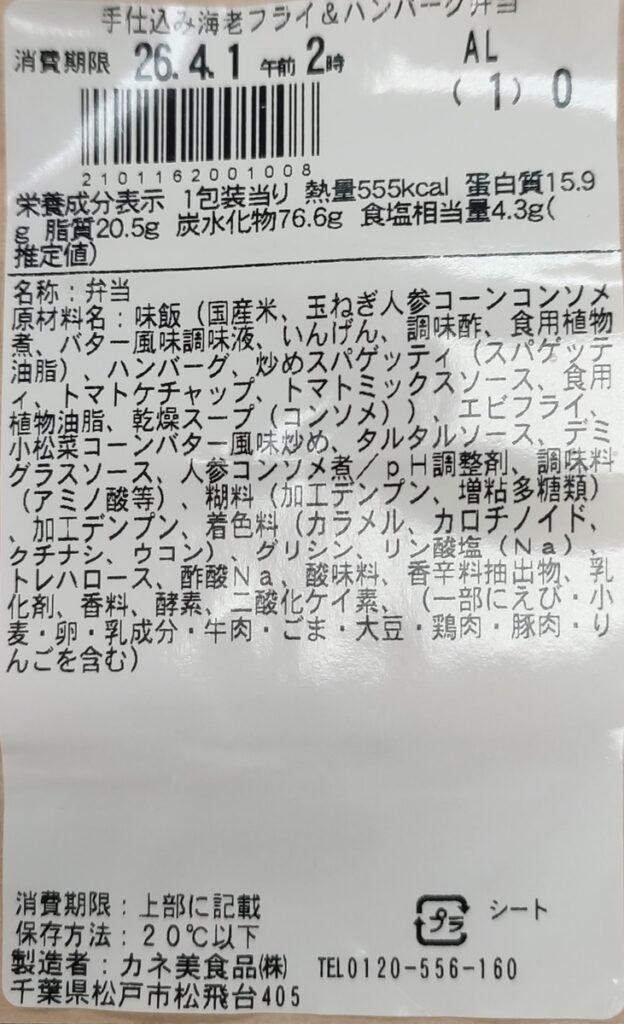 手仕込み海老フライ&ハンバーグ弁当
消費期限 26.4.1 午前 2時 AL
(1) 0
2101162001008
栄養成分表示 1包装当り 熱量555kcal 蛋白質15.9
g 脂質20.5g 炭水化物76.6g 食塩相当量4.3g(
推定値)
名称:弁当
原材料名:味飯(国産米、玉ねぎ人参コーンコンソメ
煮、バター風味調味液、いんげん、調味酢、食用植物
油脂)、ハンバーグ、炒めスパゲッティ(スパゲッテ
ィ、トマトケチャップ、トマトミックスソース、食用
植物油脂、乾燥スープ(コンソメ))、エビフライ、
小松菜コーンバター風味炒め、タルタルソース、デミ
グラスソース、人参コンソメ煮/pH調整剤、調味料
(アミノ酸等)、糊料(加工デンプン、増粘多糖類)
、加工デンプン、着色料(カラメル、カロチノイド、
クチナシ、ウコン)、グリシン、リン酸塩(Na)、
トレハロース、酢酸Na、酸味料、香辛料抽出物、乳
化剤、香料、酵素、二酸化ケイ素、(一部にえび・小
麦・卵・乳成分・牛肉・ごま・大豆・鶏肉・豚肉・り
んごを含む)
消費期限:上部に記載
プラ シート
保存方法:20℃以下
製造者:カネ美食品㈱ TEL0120-556-160
千葉県松戸市松飛台405